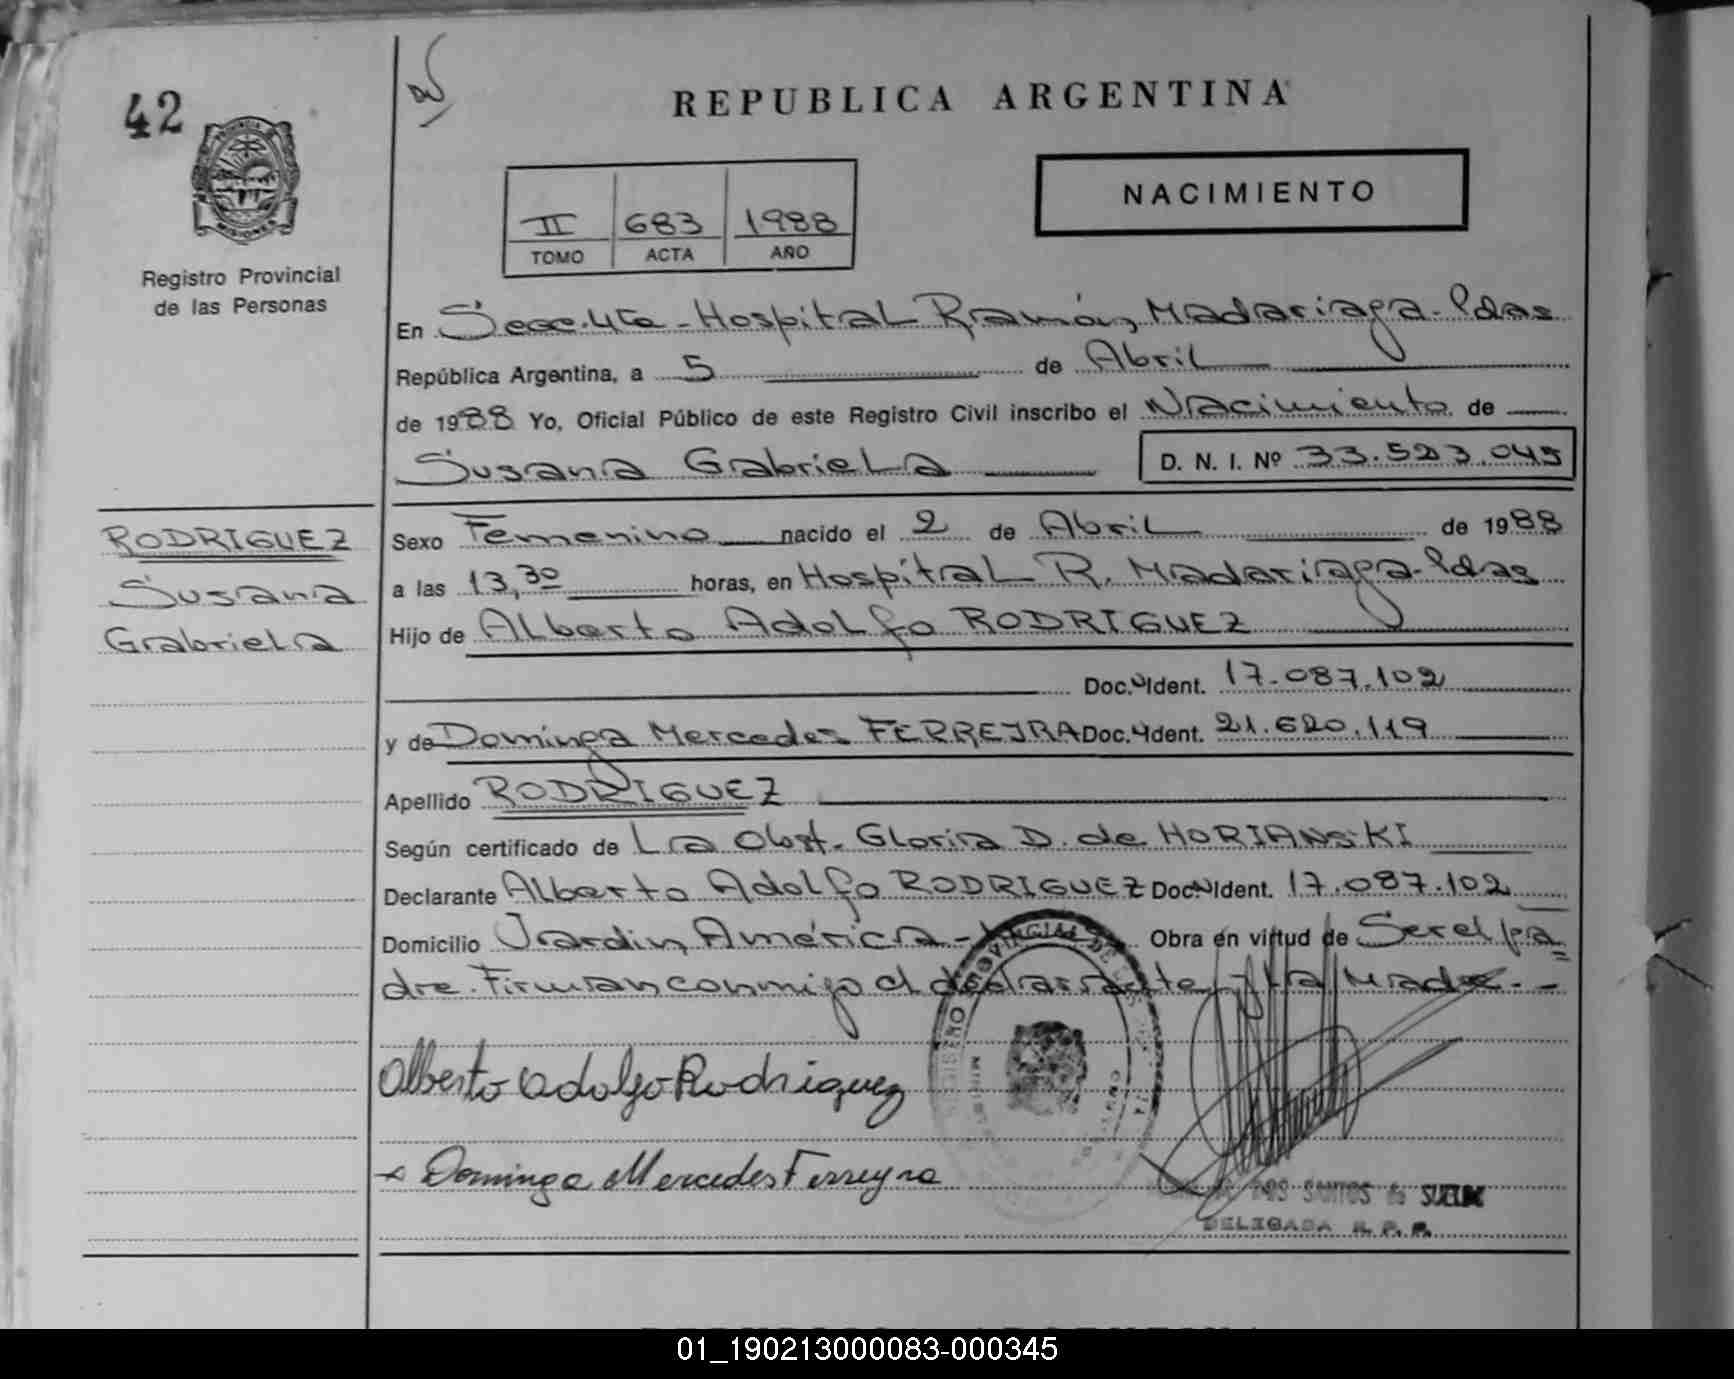 42
REPUBLICA ARGENTINA
PROVINCIA DE
MISIONES
Registro Provincial
de las Personas
II 683 1988
TOMO ACTA AÑO
NACIMIENTO
En Secc. 4ta - Hospital Ramón Madariaga - Pdas
República Argentina, a 5 de Abril
de 1988 Yo, Oficial Público de este Registro Civil inscribo el Nacimiento de
Susana Gabriela D. N. I. Nº 33.523.045
RODRIGUEZ
Susana
Gabriela
Sexo Femenino nacido el 2 de Abril de 1988
a las 13,30 horas, en Hospital R. Madariaga - Pdas
Hijo de Alberto Adolfo RODRIGUEZ
Doc. Ident. 17.087.102
y de Dominga Mercedes FERREIRA Doc. Ident. 21.620.119
Apellido RODRIGUEZ
Según certificado de La Obst. Gloria D. de HORIANSKI
Declarante Alberto Adolfo RODRIGUEZ Doc. Ident. 17.087.102
Domicilio Jardin América - Obra en virtud de Ser el pa
dre. Firman conmigo el declarante y la Madre. -
Alberto Adolfo Rodriguez
Dominga Mercedes Ferreyra
DOS SANTOS de
DELEGADA R. P. P.
01_190213000083-000345